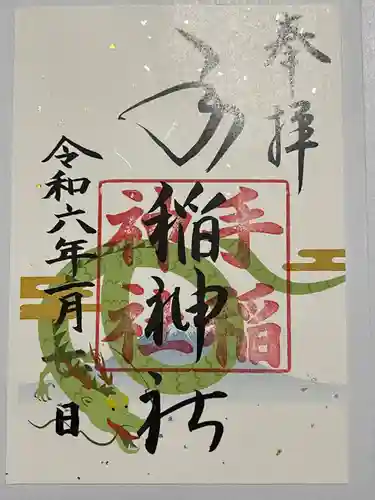 奉拝
手稲神社
手稲
神社
令和六年一月 日